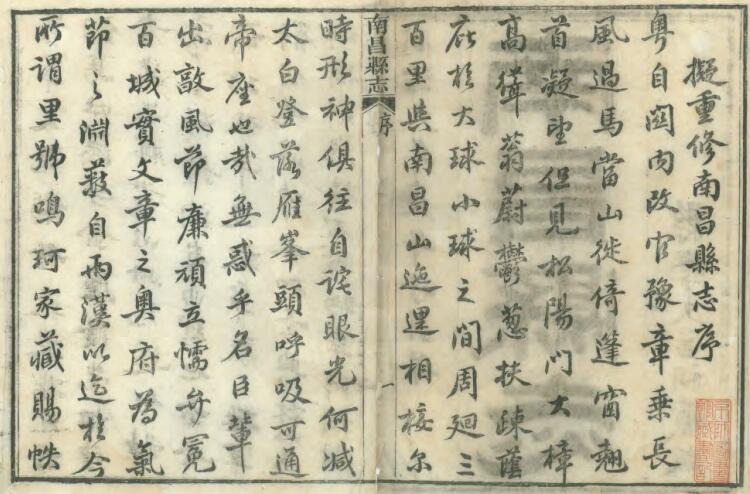 擬重修南昌縣志序
粵自關內改官豫章乗長
風過馬當山徙倚蓬窗翹
首凝望但見松陽門大樟
高聳蓊蔚鬱葱扶疎蔭
庇於大球小球之間周廻三
百里與南昌山迤邐相接尔
南昌縣志
序
一
時形神俱往自詫眼光何减
太白登落雁峯頭呼吸可通
帝座也哉無惑乎名臣輩
出敦風節廉頑立懦弁冕
百城實文章之奥府為氣
節之淵薮自両漢以迄於今
所謂里號鳴珂家藏賜帙